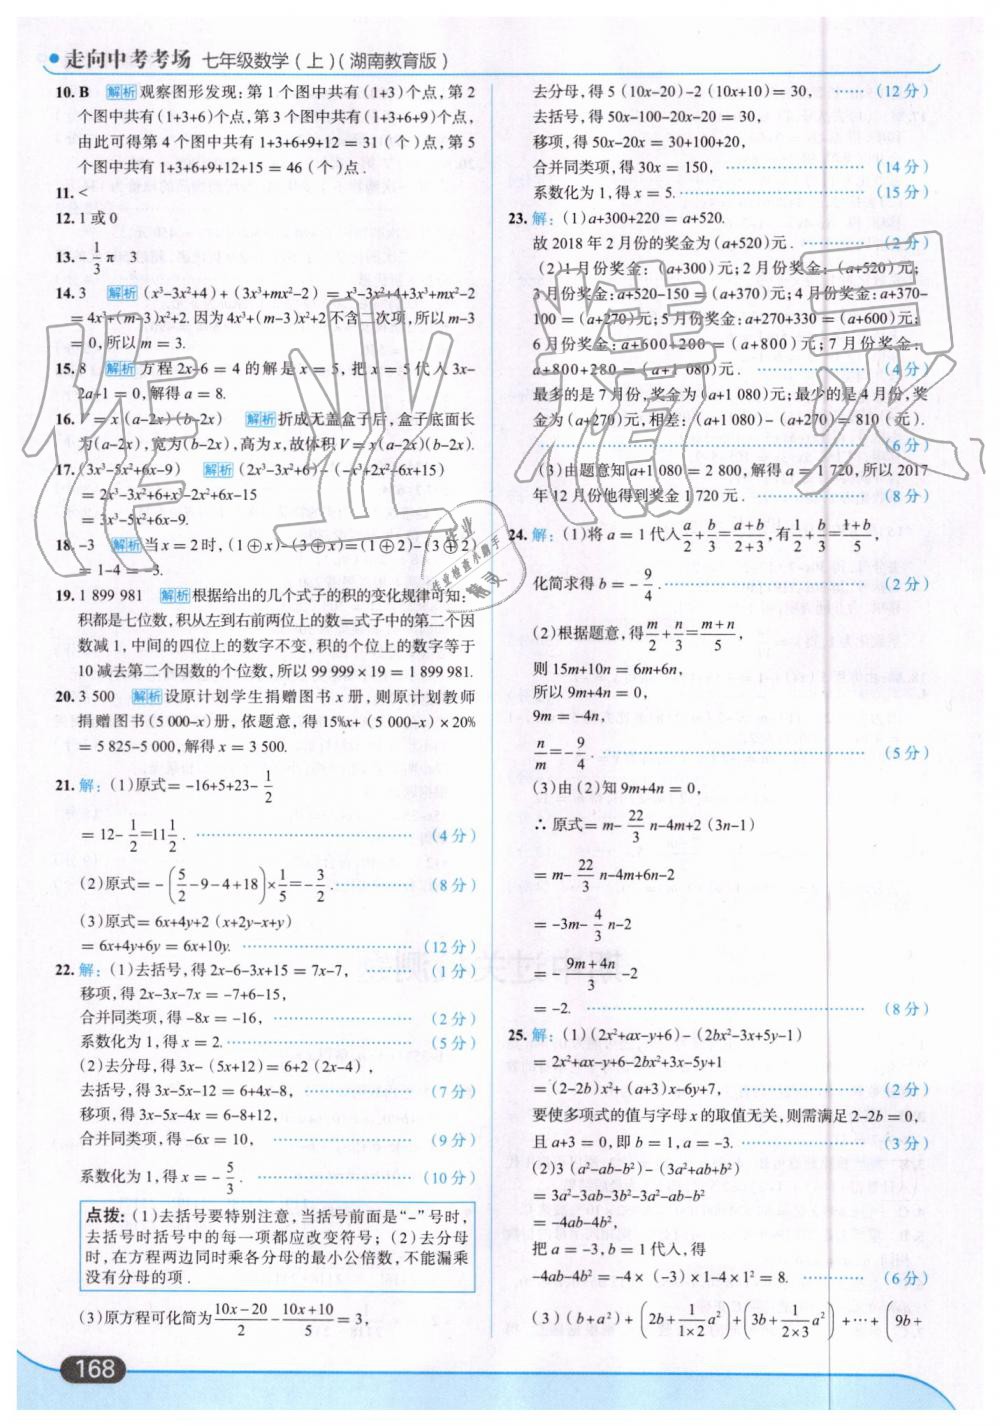 走向中考考场 七年级数学(上)(湖南教育版)
10. B 解析 观察图形发现:第1个图中共有(1+3)个点,第2
个图中共有(1+3+6)个点,第3个图中共有(1+3+6+9)个点,
由此可得第4个图中共有1+3+6+9+12 = 31(个)点,第5
个图中共有1+3+6+9+12+15 = 46(个)点.
11. <
12. 1或0
13. -1/3 π 3
14. 3 解析 (x³-3x²+4)+(3x³+mx²-2) = x³-3x²+4+3x³+mx²-2
= 4x³+(m-3)x²+2.因为4x³+(m-3)x²+2不含二次项,所以m-3
= 0,所以m = 3.
15. 8 解析 方程2x-6 = 4的解是x = 5,把x = 5代入3x-
2a+1 = 0,解得a = 8.
16. V = x(a-2x)(b-2x) 解析 折成无盖盒子后,盒子底面长
为(a-2x),宽为(b-2x),高为x,故体积V = x(a-2x)(b-2x).
17. (3x³-5x²+6x-9) 解析 (2x³-3x²+6)-(-x³+2x²-6x+15)
= 2x³-3x²+6+x³-2x²+6x-15
= 3x³-5x²+6x-9.
18. -3 解析 当x = 2时,(1⊕x)-(3⊕x)=(1⊕2)-(3⊕2)
= 1-4 = -3.
19. 1 899 981 解析 根据给出的几个式子的积的变化规律可知:
积都是七位数,积从左到右前两位上的数=式子中的第二个因
数减1,中间的四位上的数字不变,积的个位上的数字等于
10减去第二个因数的个位数,所以99 999×19 = 1 899 981.
20. 3 500 解析 设原计划学生捐赠图书x册,则原计划教师
捐赠图书(5 000-x)册,依题意,得15%x+(5 000-x)×20%
= 5 825-5 000,解得x = 3 500.
21. 解:(1)原式= -16+5+23-1/2
= 12-1/2=11 1/2. (4分)
(2)原式= -(5/2-9-4+18)×1/5=-3/2. (8分)
(3)原式= 6x+4y+2(x+2y-x+y)
= 6x+4y+6y = 6x+10y. (12分)
22. 解:(1)去括号,得2x-6-3x+15 = 7x-7, (1分)
移项,得2x-3x-7x = -7+6-15,
合并同类项,得-8x = -16, (2分)
系数化为1,得x = 2. (5分)
(2)去分母,得3x-(5x+12)= 6+2(2x-4),
去括号,得3x-5x-12 = 6+4x-8, (7分)
移项,得3x-5x-4x = 6-8+12,
合并同类项,得-6x = 10, (9分)
系数化为1,得x = -5/3. (10分)
点拨:(1)去括号要特别注意,当括号前面是“-”号时,
去括号时括号中的每一项都应改变符号;(2)去分母
时,在方程两边同时乘各分母的最小公倍数,不能漏乘
没有分母的项.
(3)原方程可化简为(10x-20)/2-(10x+10)/5= 3,
去分母,得5(10x-20)-2(10x+10)= 30, (12分)
去括号,得50x-100-20x-20 = 30,
移项,得50x-20x = 30+100+20,
合并同类项,得30x = 150, (14分)
系数化为1,得x = 5. (15分)
23. 解:(1)a+300+220 = a+520.
故2018年2月份的奖金为(a+520)元. (2分)
(2)1月份奖金:(a+300)元;2月份奖金:(a+520)元;
3月份奖金:a+520-150 =(a+370)元;4月份奖金:a+370-
100 =(a+270)元;5月份奖金:a+270+330 =(a+600)元;
6月份奖金:a+600+200 =(a+800)元;7月份奖金:
a+800+280 =(a+1 080)元. (4分)
最多的是7月份,奖金为(a+1 080)元;最少的是4月份,奖
金为(a+270)元,相差:(a+1 080)-(a+270)= 810(元).
(6分)
(3)由题意知a+1 080 = 2 800,解得a = 1 720,所以2017
年12月份他得到奖金1 720元. (8分)
24. 解:(1)将a = 1代入a/2+b/3=(a+b)/(2+3),有1/2+b/3=(1+b)/5,
化简求得b = -9/4. (2分)
(2)根据题意,得m/2+n/3=(m+n)/5,
则15m+10n = 6m+6n,
所以9m+4n = 0,
9m = -4n,
n/m=-9/4. (5分)
(3)由(2)知9m+4n = 0,
∴原式= m-22/3 n-4m+2(3n-1)
= m-22/3 n-4m+6n-2
= -3m-4/3 n-2
= -(9m+4n)/3-2
= -2. (8分)
25. 解:(1)(2x²+ax-y+6)-(2bx²-3x+5y-1)
= 2x²+ax-y+6-2bx²+3x-5y+1
=(2-2b)x²+(a+3)x-6y+7, (2分)
要使多项式的值与字母x的取值无关,则需满足2-2b = 0,
且a+3 = 0,即b = 1,a = -3. (3分)
(2)3(a²-ab-b²)-(3a²+ab+b²)
= 3a²-3ab-3b²-3a²-ab-b²
= -4ab-4b²,
把a = -3,b = 1代入,得
-4ab-4b² = -4×(-3)×1-4×1² = 8. (6分)
(3)(b+a²)+(2b+1/(1×2) a²)+(3b+1/(2×3) a²)+…+(9b+
168